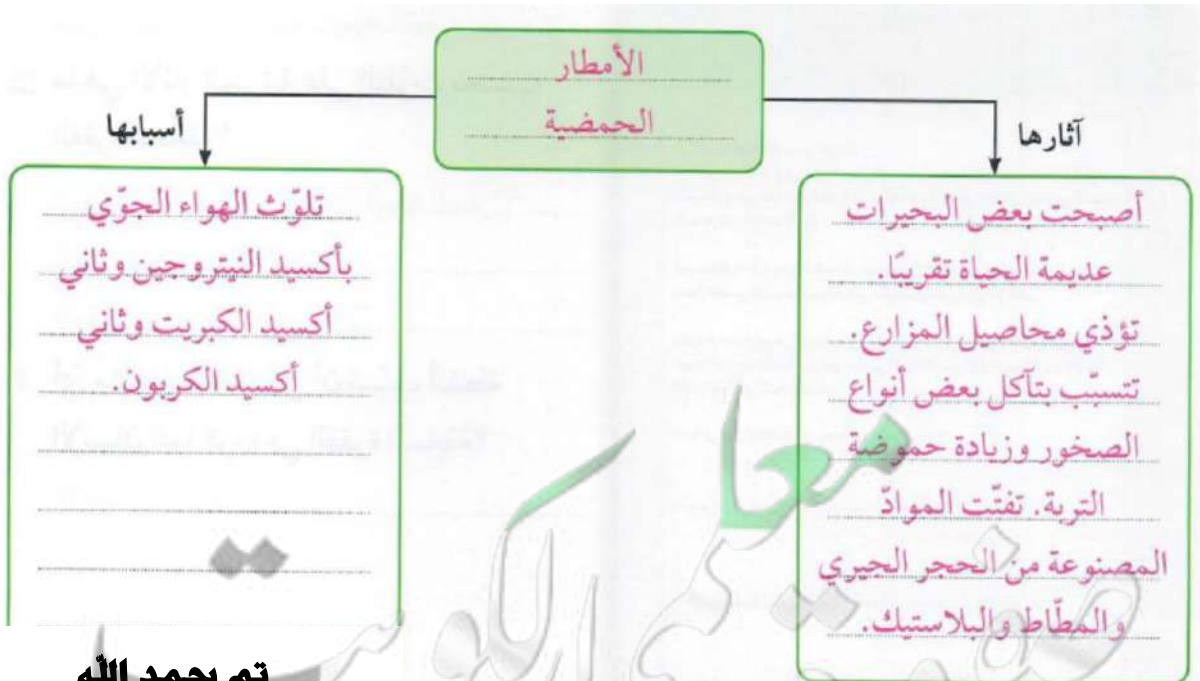 الأمطار
الحمضية
آثارها
أسبابها
أصبحت بعض البحيرات
عديمة الحياة تقريبًا.
تؤذي محاصيل المزارع.
تتسبّب بتآكل بعض أنواع
الصخور وزيادة حموضة
التربة. تفتّت الموادّ
المصنوعة من الحجر الجيري
والمطّاط والبلاستيك.
تلوّث الهواء الجوّي
بأكسيد النيتروجين وثاني
أكسيد الكبريت وثاني
أكسيد الكربون.
تم بحمد الله